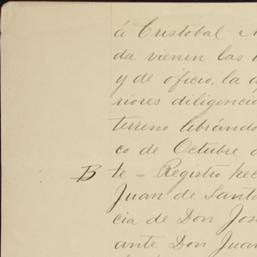 á Cristobal
da vienen las
y de oficio, la
riores diligencia
terreno librándo
co de Octubre
B te - Registro hec
Juan de Santa
cia de Don Jos
ante Don Juan